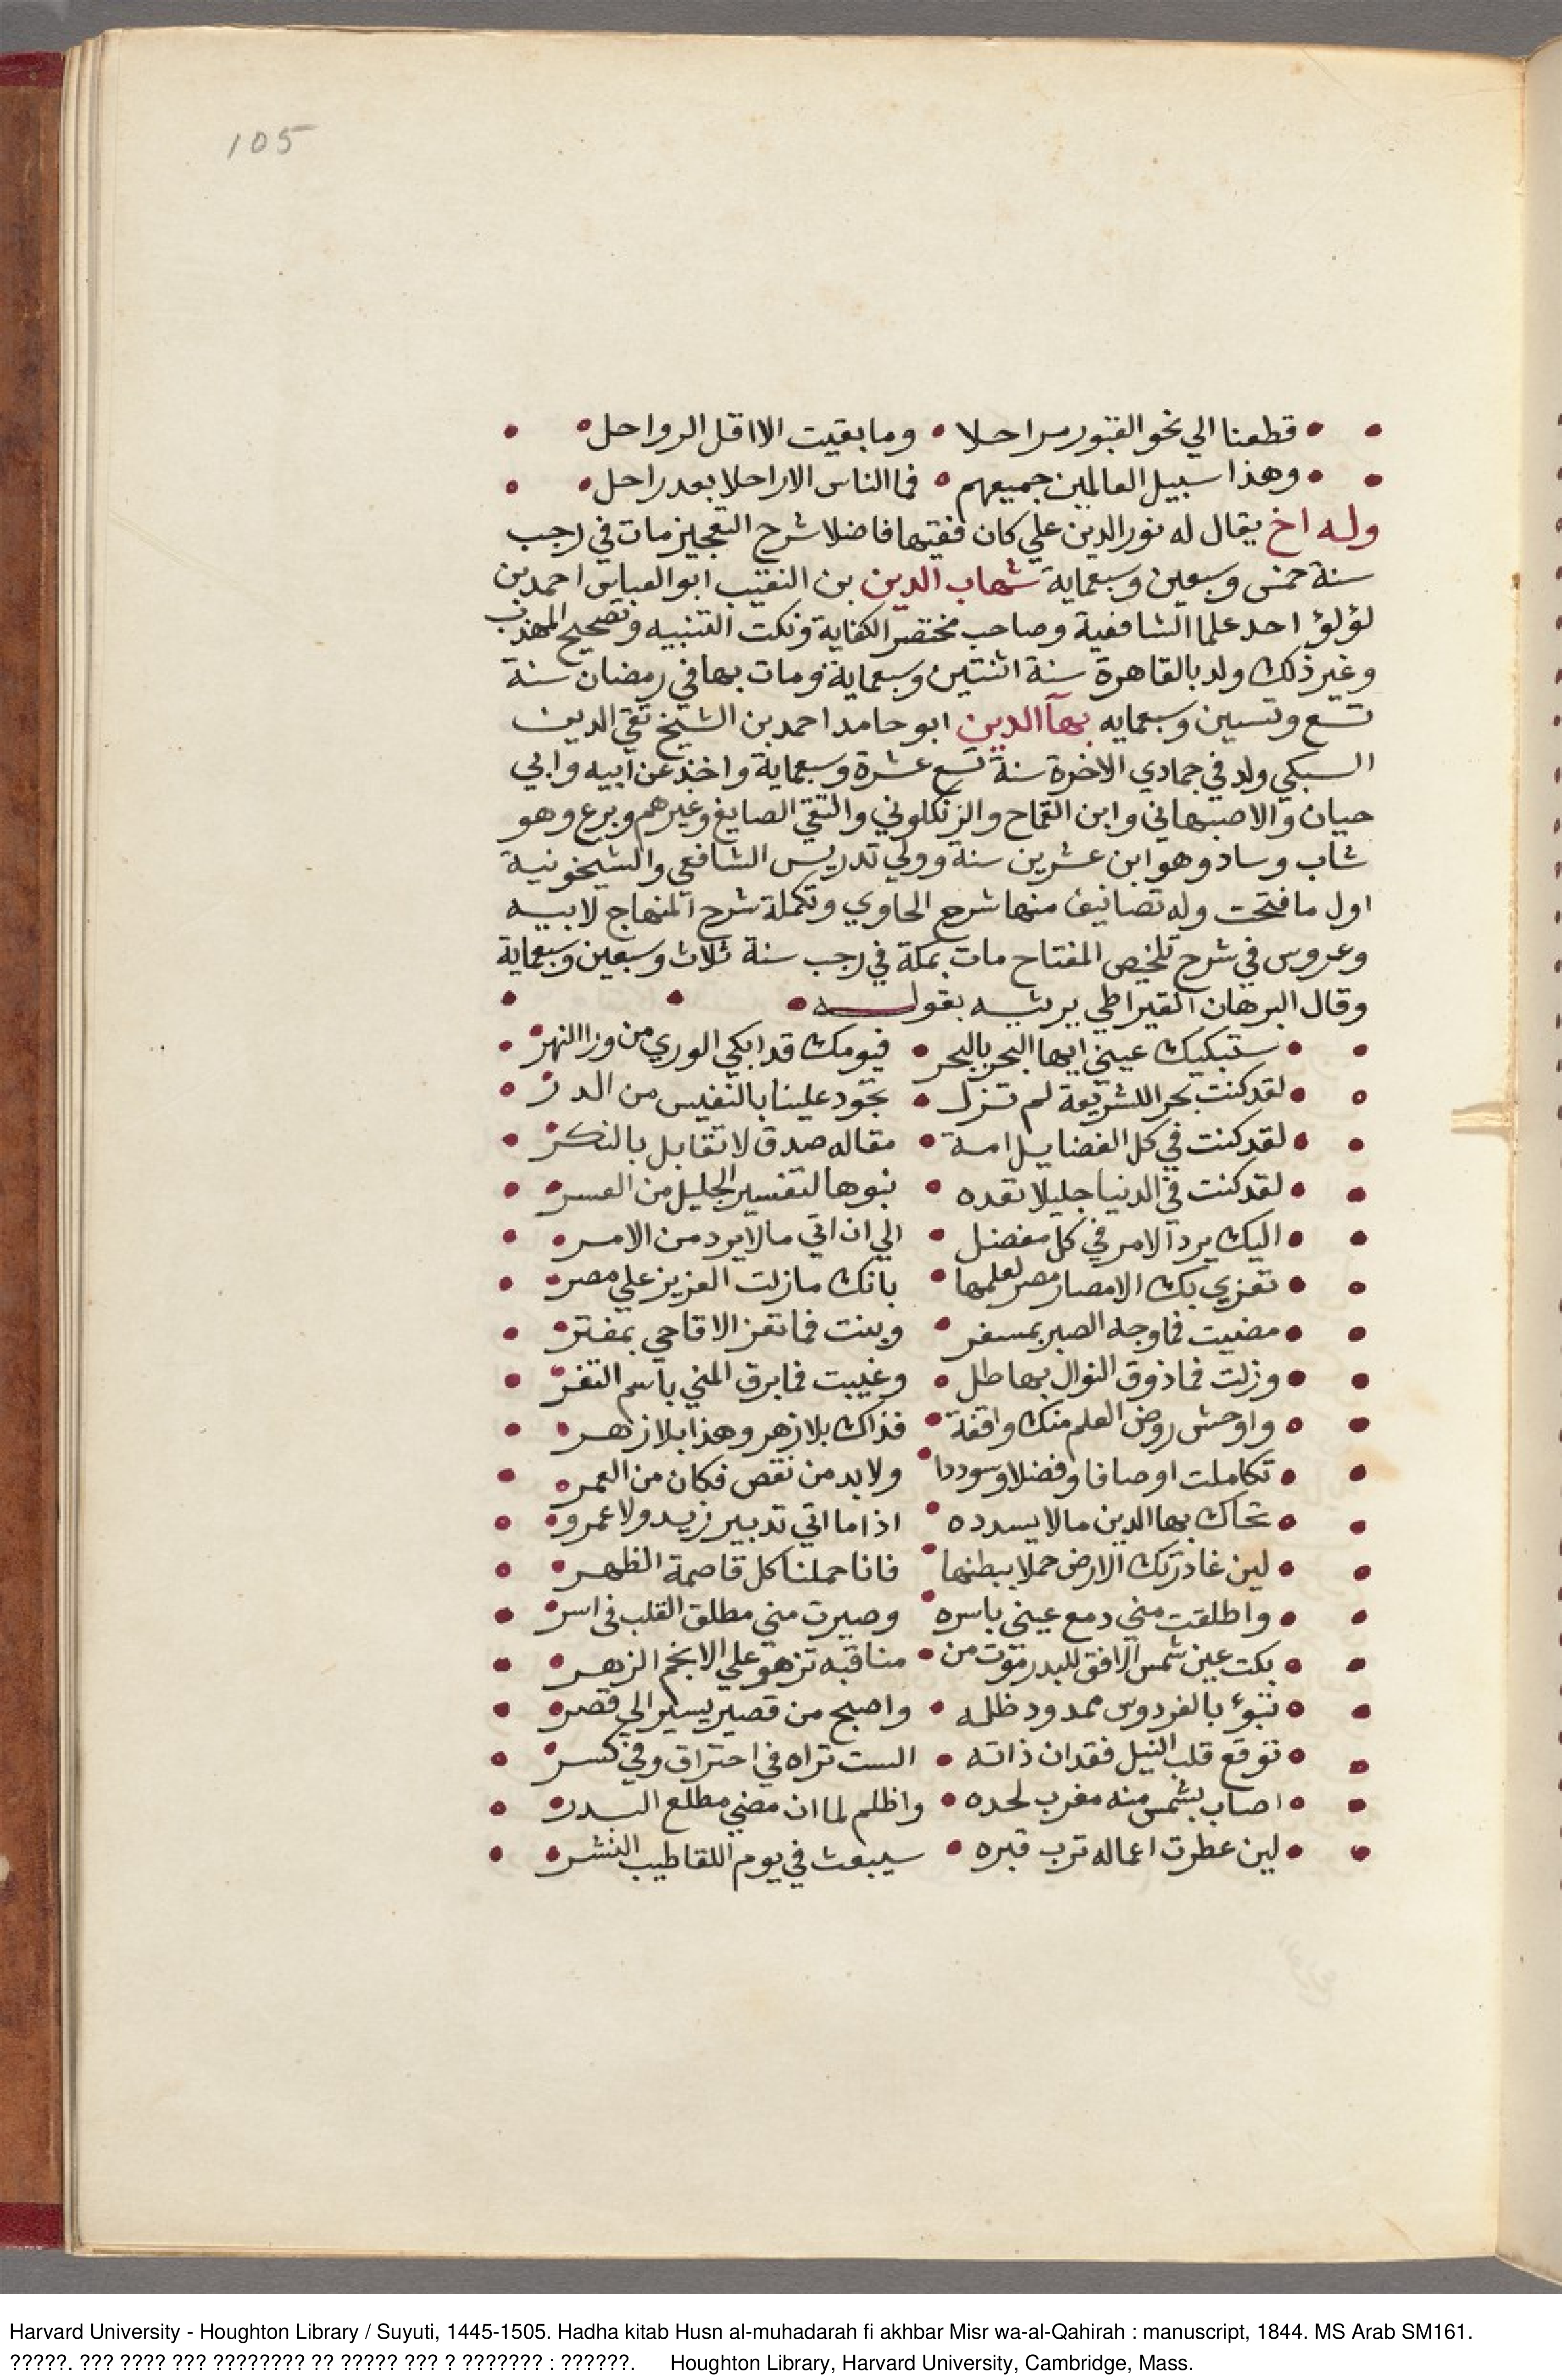 105
قطعنا الي نحو القبور مراحلا • وما بقيت الا اقل الرواحل
وهذا سبيل العالمين جميعهم • فما الناس الا راحلا بعد راحل
وله اخ يقال له نور الدين علي كان فقيها فاضلا شرح التعجيز مات في رجب
سنة خمس وسبعين وسبعماية شهاب الدين بن النقيب ابو العباس احمد بن
لؤلؤ احد علما الشافعية وصاحب مختصر الكفاية ونكت التنبيه وتصحيح المهذب
وغير ذلك ولد بالقاهرة سنة اثنتين وسبعماية ومات بها في رمضان سنة
تسع وتسين وسبعمايه بهآ الدين ابو حامد احمد بن الشيخ تقي الدين
السبكي ولد في جمادي الاخرة سنة تسع عشرة وسبعماية واخذ عن ابيه وابي
حيان والاصبهاني وابن القماح والزنكلوني والتقي الصايغ وغيرهم وبرع وهو
شاب وساد وهو ابن عشرين سنة وولي تدريس الشافعي والشيخونية
اول ما فتحت وله تصانيف منها شرح الحاوي وتكملة شرح المنهاج لابيه
وعروس في شرح تلخيص المفتاح مات بمكة في رجب سنة ثلاث وسبعين وسبعماية
وقال البرهان القيراطي يرثيه بقوله
ستبكيك عيني ايها البحر بالبحر • فيومك قد ابكي الوري من ورا النهر
لقد كنت بحرا للشريعة لم تزل • تجود علينا بالنفيس من الدر
لقد كنت في كل الفضايل امة • مقاله صدق لا تقابل بالنكر
لقد كنت في الدنيا جليلا نعده • بنوها لتفسير الجليل من العسر
اليك يرد الامر في كل معضل • الي ان اتي مالا يرد من الامر
تعزي بك الامصار مصر لعلمها • بانك مازلت العزيز علي مصر
مضيت فما وجه الصبر بمسفر • وبنت فما تغز الاقاحي بمفتر
وزلت فما ذوق النوال بها طل • وغيبت فما برق المني باسم الثغر
واوحش روض العلم منك وافقة • فذاك بلا زهر وهذا بلا زهر
تكاملت اوصافا وفضلا وسوددا • ولا بد من نقص فكان من العمر
نحاك بها الدين مالا يسدده • اذا ما اتي تدبير زيد ولا عمرو
لين غادرتك الارض حملا ببطنها • فانا حملنا كل قاصمة الظهر
واطلقت مني دمع عيني باسره • وصيرت مني مطلق القلب في اسر
بكت عين شمس الافق للبدر موت من • مناقبه تزهو علي الانجم الزهر
تبوء بالفردوس ممدود ظله • واصبح من قصير يسير الي قصر
توقع قلب النيل فقدان ذاته • الست تراه في احتراق وفي كسر
اصاب بشمس منه مغرب لحده • واظلم لما ان مضي مطلع البدر
لين عطرت اعماله ترب قبره • سيبعث في يوم اللقا طيب النشر
Harvard University - Houghton Library / Suyuti, 1445-1505. Hadha kitab Husn al-muhadarah fi akhbar Misr wa-al-Qahirah : manuscript, 1844. MS Arab SM161.
?????. ??? ???? ??? ???????? ?? ????? ??? ? ??????? : ??????. Houghton Library, Harvard University, Cambridge, Mass.